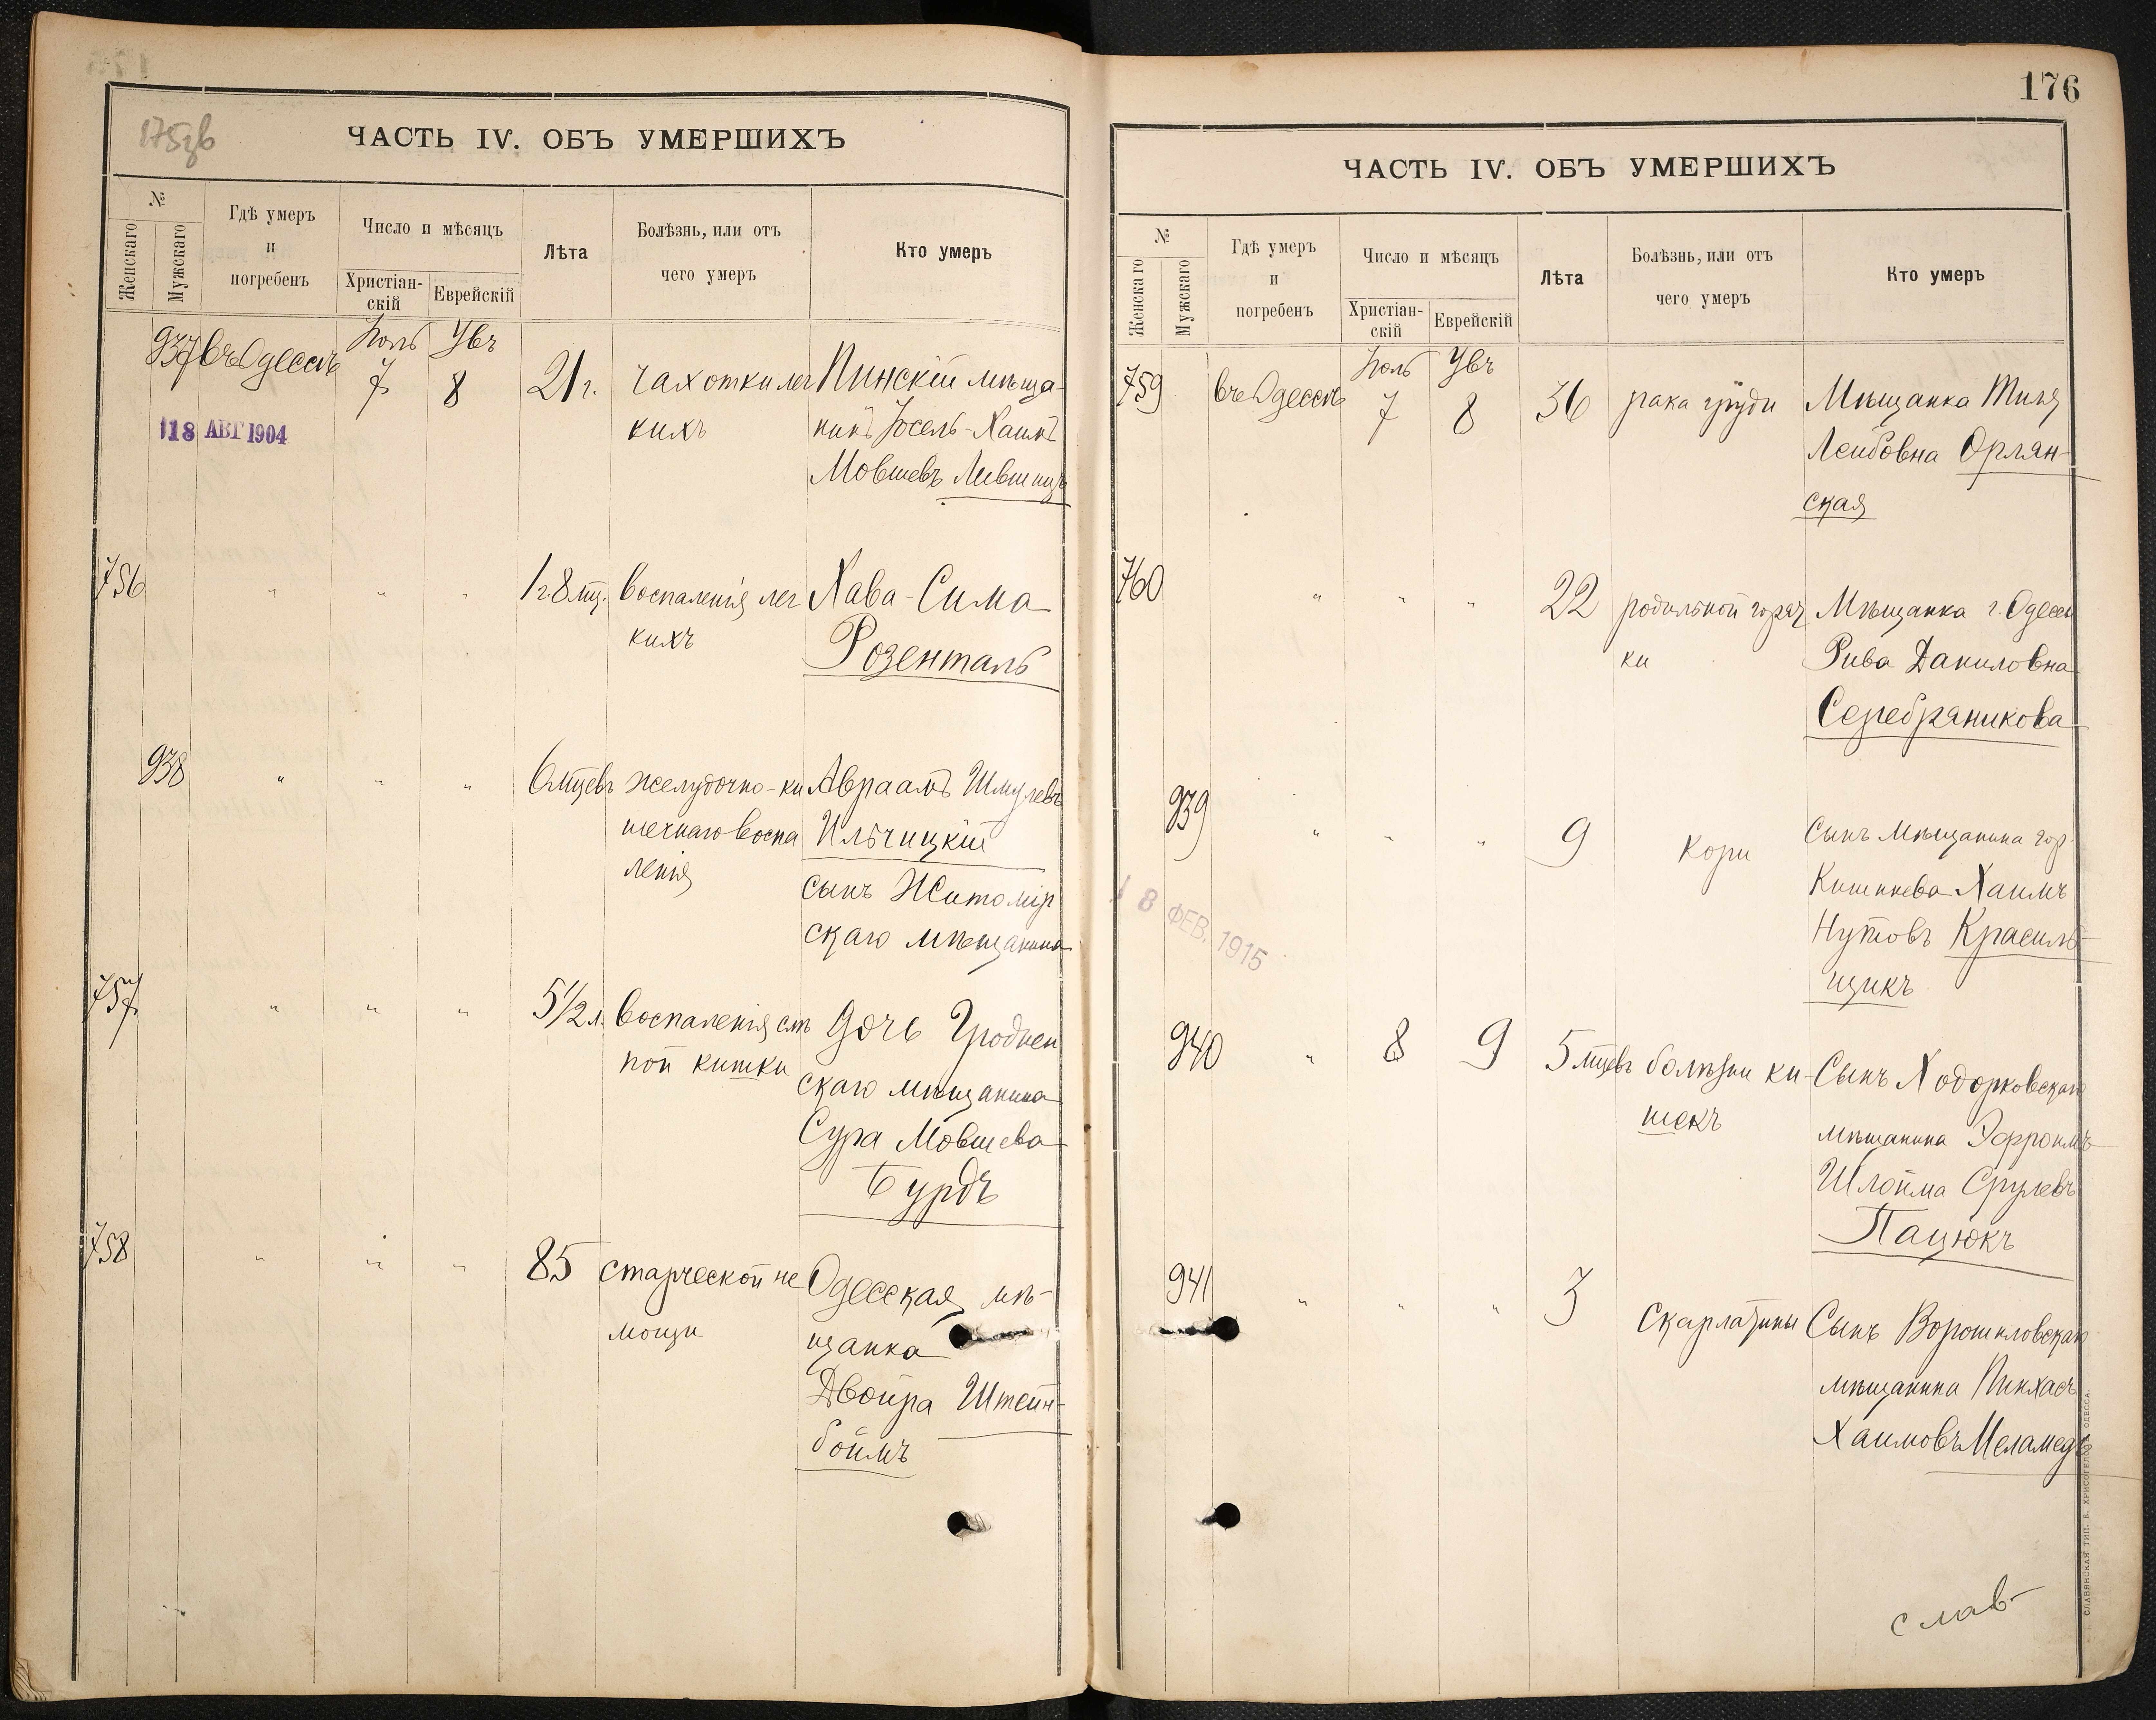 175зв
ЧАСТЬ IV. ОБЪ УМЕРШИХЪ
№
Женскаго
Мужскаго
Гдѣ умеръ
и
погребенъ
Число и мѣсяцъ
Христіан-
скій
Еврейскій
Лѣта
Болѣзнь, или отъ
чего умеръ
Кто умеръ
937 въ Одессѣ Іюль 7 8 21 г. чахотки лег Пинскій мѣща-
кихъ нинъ Іосель-Хаимъ
118 АВГ 1904
Мовшевъ Лившицъ
756 " " " 1 г. 8 мц. воспаленія лег Хава-Сима
кихъ Розенталь
938 " " " 6 мцевъ желудочно-ки Авраамъ Шмулевъ
шечнаго воспа Ильчицкій
ленія сынъ Житомір
скаго мѣщанина
757 " " " 5 1/2 л. воспаленія слѣ дочь Гроднен
пой кишки скаго мѣщанина
Сура Мовшева
Бурдъ
758 " " " 85 старческой не Одесская мѣ-
мощи щанка
Двойра Штейн-
боймъ
176
ЧАСТЬ IV. ОБЪ УМЕРШИХЪ
№
Женскаго
Мужскаго
Гдѣ умеръ
и
погребенъ
Число и мѣсяцъ
Христіан-
скій
Еврейскій
Лѣта
Болѣзнь, или отъ
чего умеръ
Кто умеръ
759 въ Одессѣ Іюль 7 8 36 рака груди Мѣщанка
Лейбовна Орлян-
ская
760 " " " 22 родильной горяч Мѣщанка г. Одессы
ки Рива Даниловна
Серебряникова
939 " " " 9 кори Сынъ мѣщанина гор.
Кишинева Хаимъ
Нутовъ Красиль
щикъ
18 ФЕВ. 1915
940 " 8 9 5 мцевъ болѣзни ки- Сынъ Ходорковскаго
шекъ мѣщанина Эфроимъ
Шлойма Срулевъ
Пацюкъ
941 " " " 3 скарлатины Сынъ Ворошиловскаго
мѣщанина Пинхасъ
Хаимовъ Меламедъ
слав-
СЛАВЯНСКАЯ ТИП. Е. ХРИСОГЕЛОСЪ ОДЕССА.